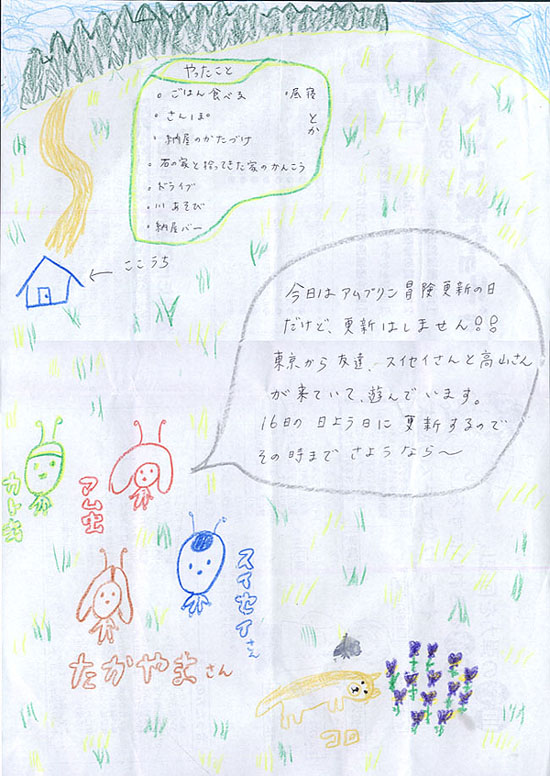 やったこと
。ごはん食べる
・昼寝
とか
。さんぽ
・納屋のかたづけ
・石の家と拾ってきた家のかんこう
・ドライブ
・川あそび
・納屋バー
ここうち
今日はアムプリン冒険更新の日
だけど、更新はしません!!
東京から友達、スイセイさんと高山さん
が来ていて、遊んでいます。
16日の日よう日に更新するので
その時までさようなら〜
カト虫
アム虫
スイセイさん
たかやまさん
コロ